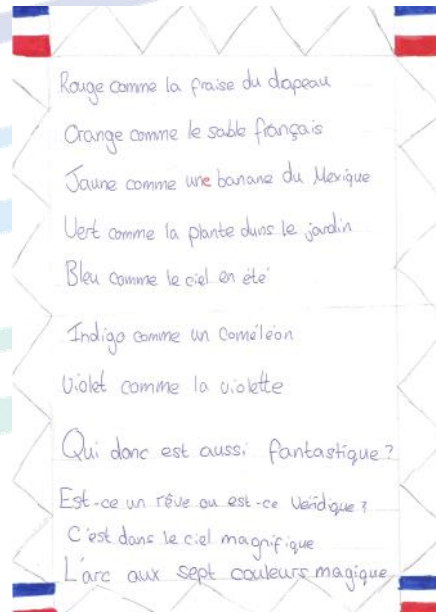 Rouge comme la fraise du drapeau
Orange comme le sable français
Jaune comme une banane du Mexique
Vert comme la plante dans le jardin
Bleu comme le ciel en été
Indigo comme un coméléon
Violet comme la violette
Qui donc est aussi fantastique?
Est-ce un rêve ou est-ce véridique?
C'est dans le ciel magnifique
L'arc aux sept couleurs magique